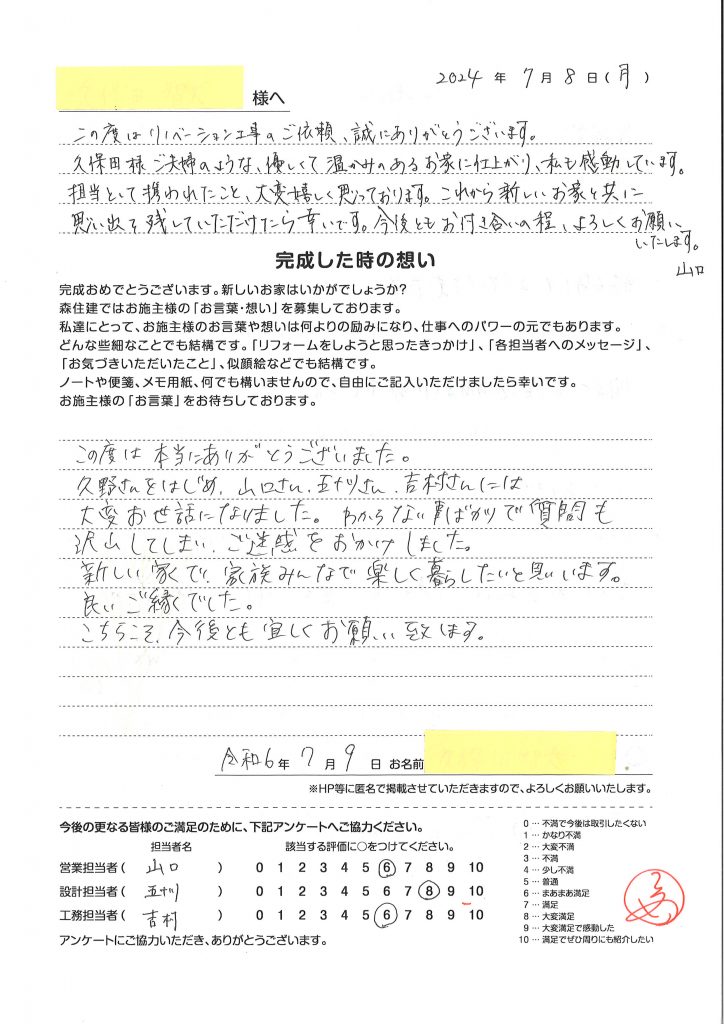 2024 年 7 月 8 日 (月)
様へ
この度はリノベーション工事のご依頼、誠にありがとうございます。
久保田様ご夫婦のような、優しくて温かみのあるお家に仕上がり、私も感動しています。
担当として携われたこと、大変嬉しく思っております。これから新しいお家と共に
思い出を残していただけたら幸いです。今後ともお付き合いの程、よろしくお願い
いたします。
山口
完成した時の想い
完成おめでとうございます。新しいお家はいかがでしょうか?
森住建ではお施主様の「お言葉・想い」を募集しております。
私達にとって、お施主様のお言葉や想いは何よりの励みになり、仕事へのパワーの元でもあります。
どんな些細なことでも結構です。「リフォームをしようと思ったきっかけ」、「各担当者へのメッセージ」、
「お気づきいただいたこと」、似顔絵などでも結構です。
ノートや便箋、メモ用紙、何でも構いませんので、自由にご記入いただけましたら幸いです。
お施主様の「お言葉」をお待ちしております。
この度は本当にありがとうございました。
久野さんをはじめ、山口さん、五十川さん、吉村さんには
大変お世話になりました。わからない事ばかりで質問も
沢山してしまい、ご迷惑をおかけしました。
新しい家で、家族みんなで楽しく暮らしたいと思います。
良いご縁でした。
こちらこそ、今後とも宜しくお願い致します。
令和6年 7月 9日 お名前
※HP等に匿名で掲載させていただきますので、よろしくお願いいたします。
今後の更なる皆様のご満足のために、下記アンケートへご協力ください。
担当者名 該当する評価に○をつけてください。
営業担当者( 山口 ) 0 1 2 3 4 5 6 7 8 9 10
設計担当者( 五十川 ) 0 1 2 3 4 5 6 7 8 9 10
工務担当者( 吉村 ) 0 1 2 3 4 5 6 7 8 9 10
アンケートにご協力いただき、ありがとうございます。
0 … 不満で今後は取引したくない
1 … かなり不満
2 … 大変不満
3 … 不満
4 … 少し不満
5 … 普通
6 … まあまあ満足
7 … 満足
8 … 大変満足
9 … 大変満足で感動した
10 … 満足でぜひ周りにも紹介したい